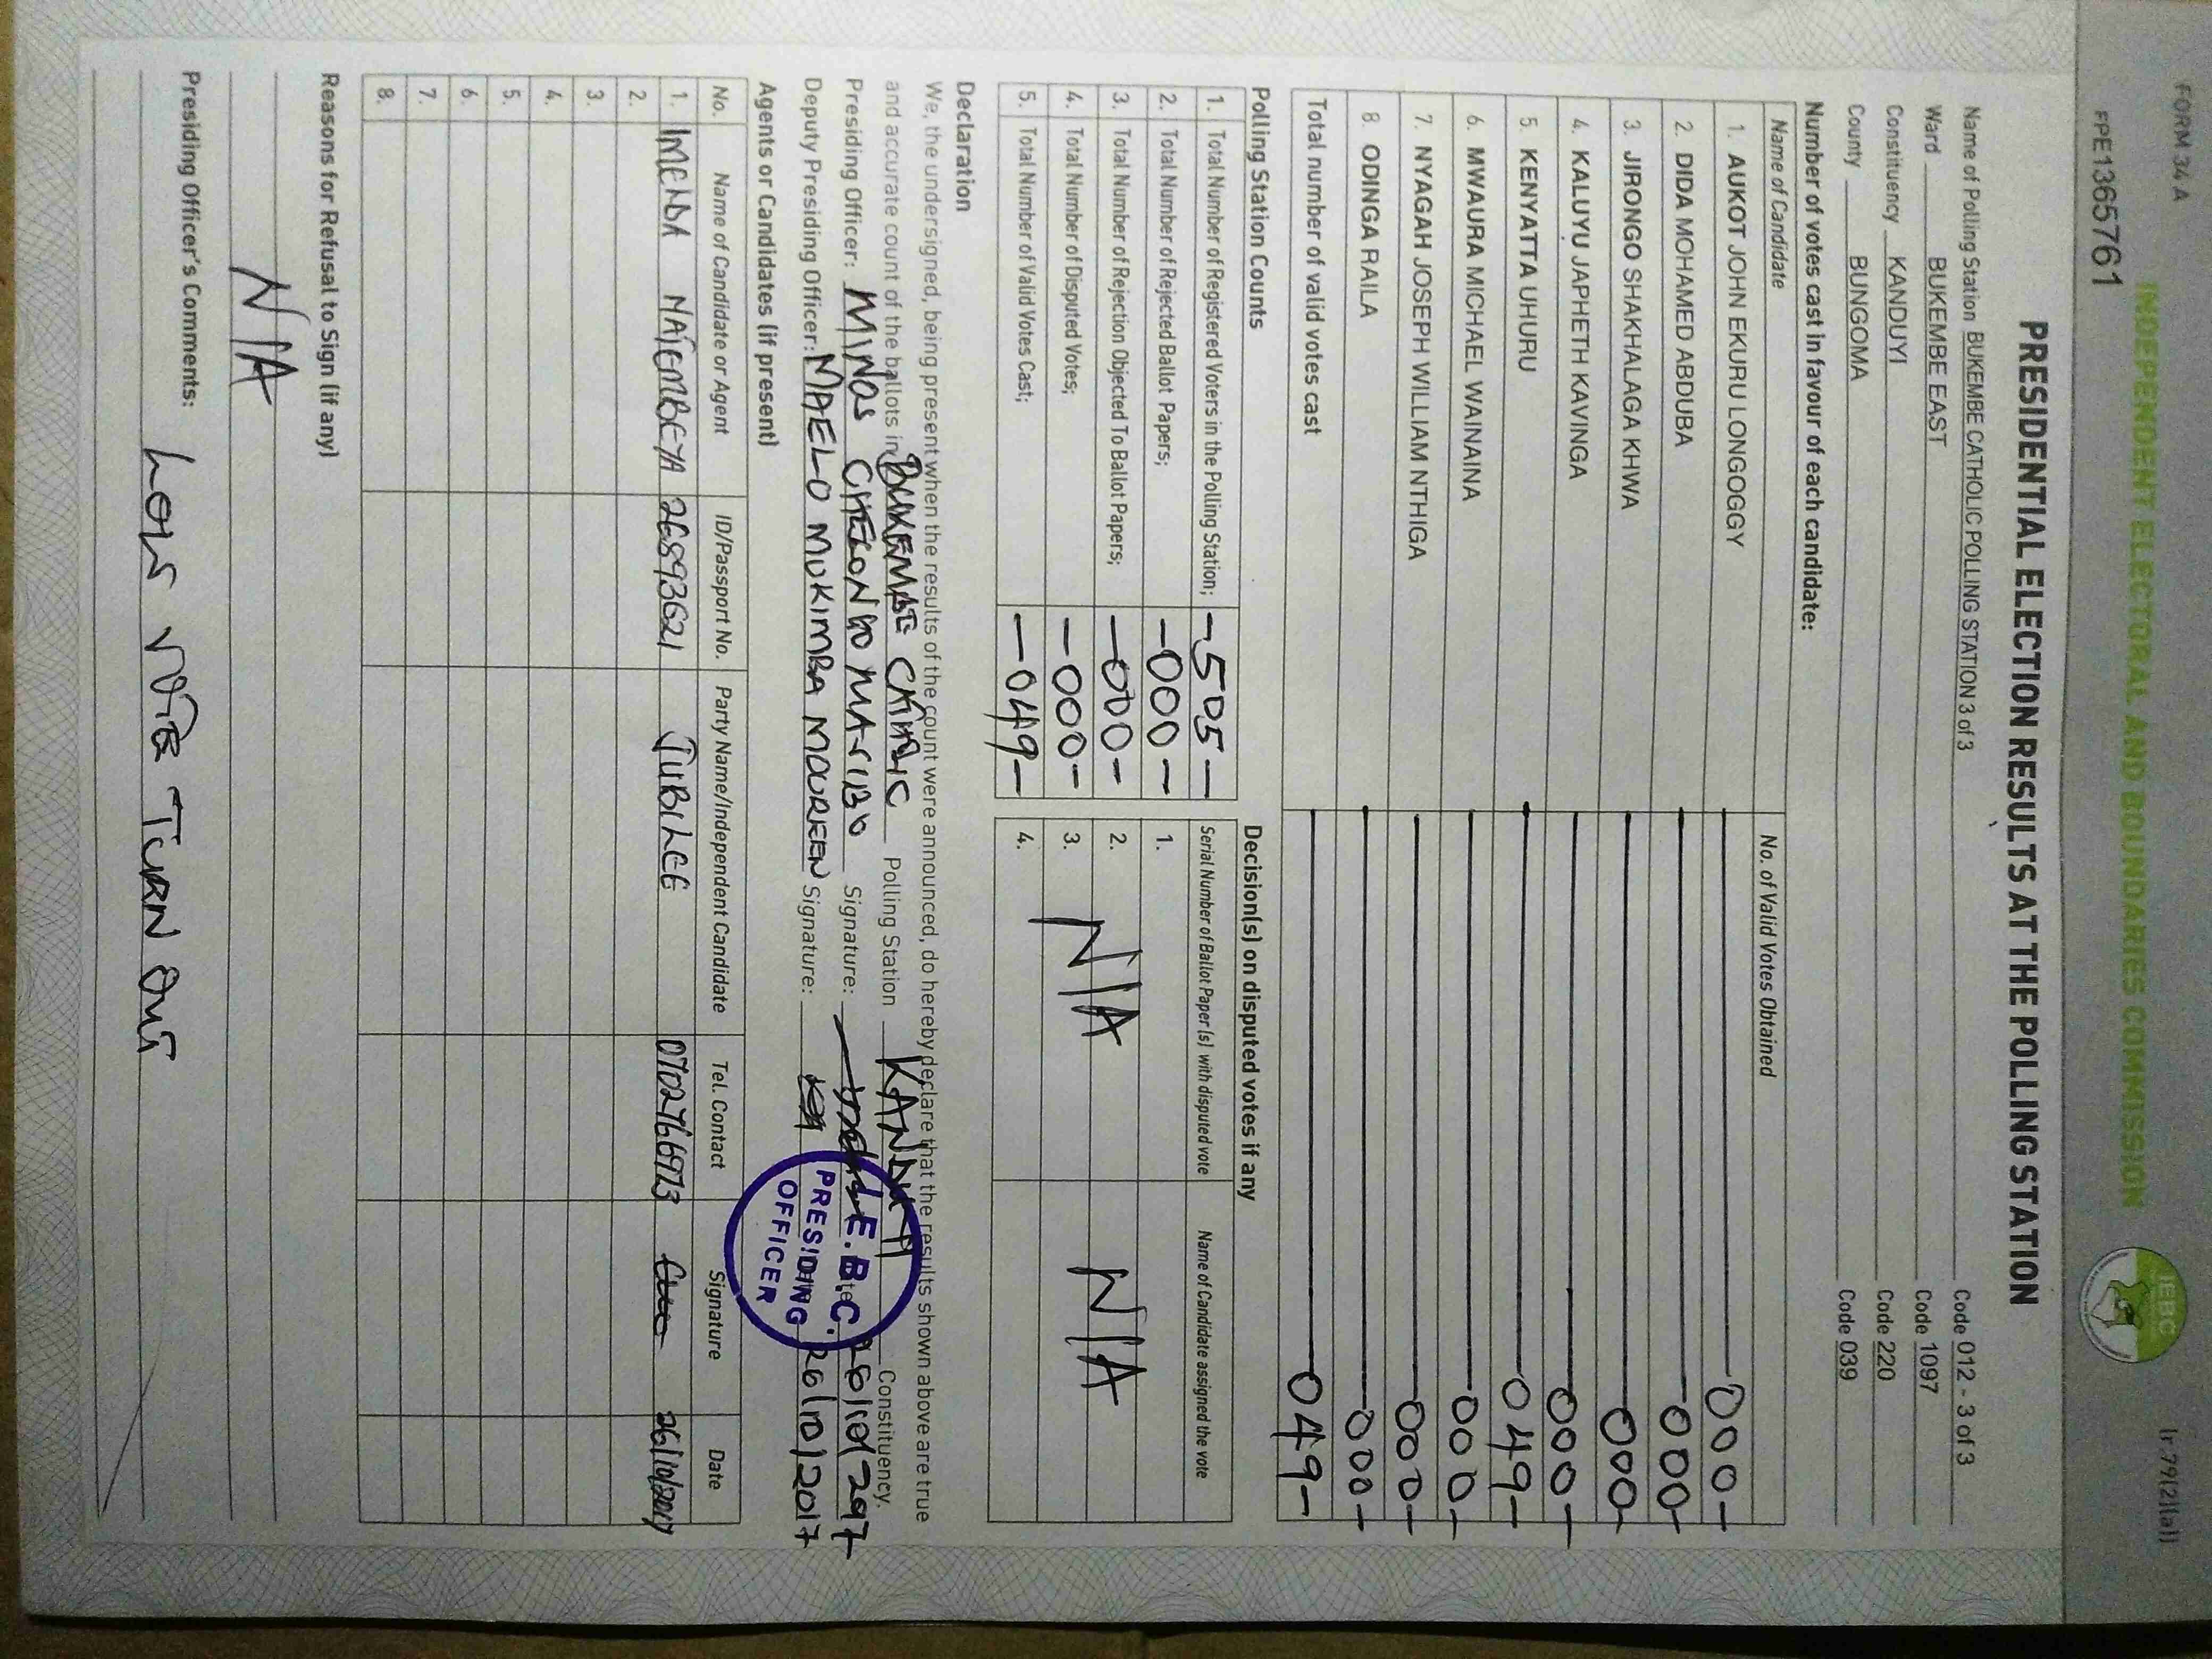 FORM 34 A
(r.79(2)(a))
INDEPENDENT ELECTORAL AND BOUNDARIES COMMISSION
IEBC
FPE1365761
PRESIDENTIAL ELECTION RESULTS AT THE POLLING STATION
Name of Polling Station BUKEMBE CATHOLIC POLLING STATION 3 of 3 Code 012 - 3 of 3
Ward BUKEMBE EAST Code 1097
Constituency KANDUYI Code 220
County BUNGOMA Code 039
Number of votes cast in favour of each candidate:
Name of Candidate No. of Valid Votes Obtained
1. AUKOT JOHN EKURU LONGOGGY 000
2. DIDA MOHAMED ABDUBA 000
3. JIRONGO SHAKHALAGA KHWA 000
4. KALUYU JAPHETH KAVINGA 000
5. KENYATTA UHURU 049
6. MWAURA MICHAEL WAINAINA 000
7. NYAGAH JOSEPH WILLIAM NTHIGA 000
8. ODINGA RAILA 000
Total number of valid votes cast 049
Polling Station Counts
1. Total Number of Registered Voters in the Polling Station; -505-
2. Total Number of Rejected Ballot Papers; -000-
3. Total Number of Rejection Objected To Ballot Papers; -000-
4. Total Number of Disputed Votes; -000-
5. Total Number of Valid Votes Cast; -049-
Decision(s) on disputed votes if any
Serial Number of Ballot Paper(s) with disputed vote Name of Candidate assigned the vote
1.
2.
3. N/A N/A
4.
Declaration
We, the undersigned, being present when the results of the count were announced, do hereby declare that the results shown above are true
and accurate count of the ballots in BUKEMBE CATHOLIC Polling Station KANDUYI Constituency.
Presiding Officer: Signature: 26/10/2017
Deputy Presiding Officer: MAELO MUKIMBA MOUREEN Signature: 26/10/2017
I.E.B.C.
PRESIDING
OFFICER
Agents or Candidates (if present)
No. Name of Candidate or Agent ID/Passport No. Party Name/Independent Candidate Tel. Contact Signature Date
1. IMENDA 26893621 JUBILEE 0702766973 26/10/2017
2.
3.
4.
5.
6.
7.
8.
Reasons for Refusal to Sign (if any)
N/A
Presiding Officer's Comments:
LOW VOTE TURN OUT